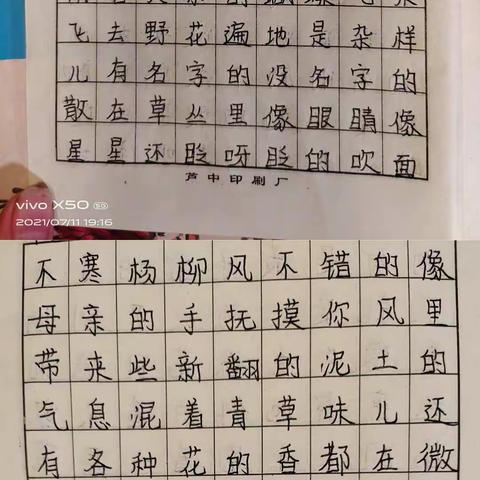 飞去野花遍地是杂样
儿有名字的没名字的
散在草丛里像眼睛像
星星还眨呀眨的吹面
芦中印刷厂
vivo X50 5G
2021/07/11 19:16
不寒杨柳风不错的像
母亲的手抚摸你风里
带来些新翻的泥土的
气息混着青草味儿还
有各种花的香都在微